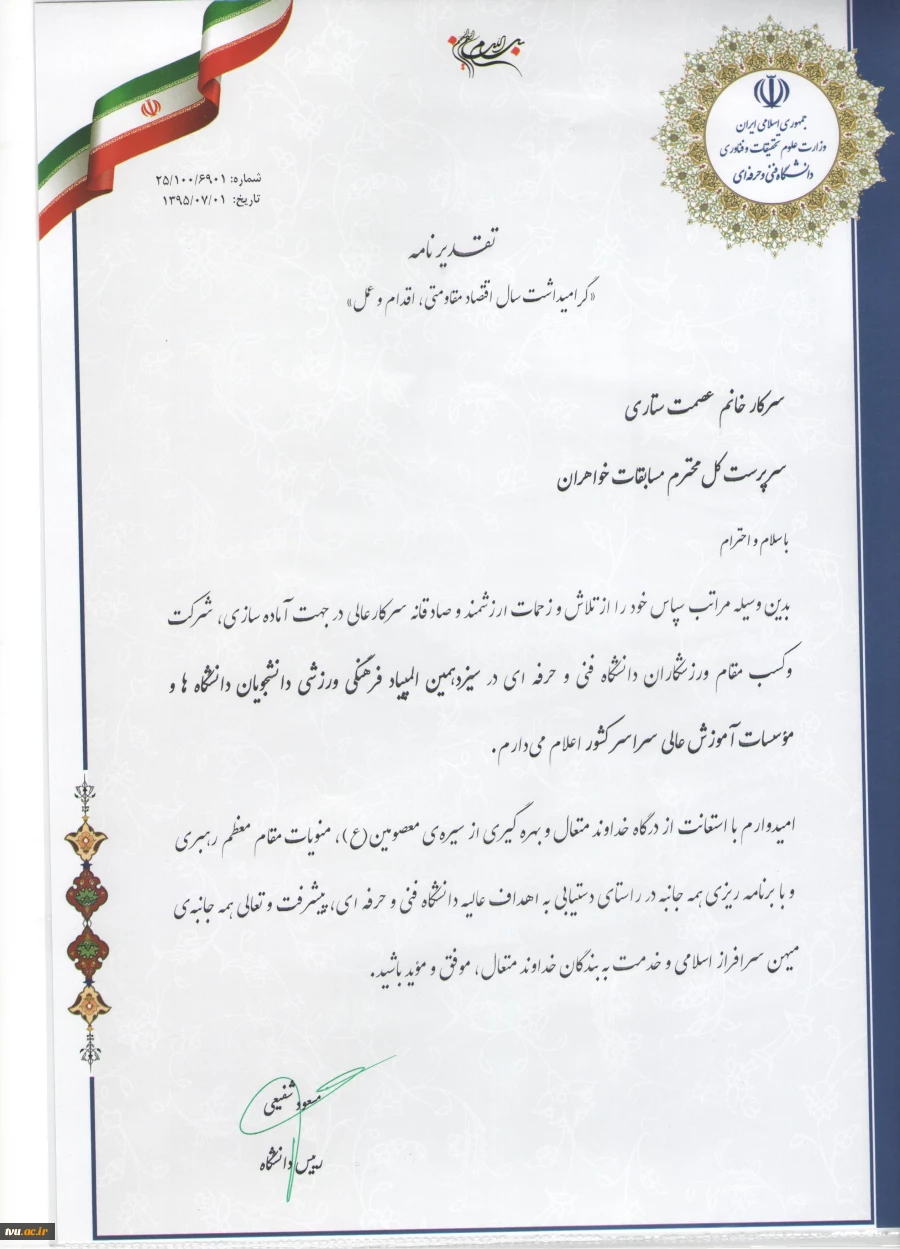 بسم الله الرحمن الرحیم
جمهوری اسلامی ایران
وزارت علوم تحقیقات و فناوری
دانشگاه فنی و حرفه‌ای
شماره: ۲۵/۱۰۰/۶۹۰۱
تاریخ: ۱۳۹۵/۰۷/۰۱
تقدیرنامه
«گرامیداشت سال اقتصاد مقاومتی، اقدام و عمل»
سرکار خانم عصمت ستاری
سرپرست کل محترم مسابقات خواهران
با سلام و احترام
بدین وسیله مراتب سپاس خود را از تلاش و زحمات ارزشمند و صادقانه سرکارعالی در جهت آماده سازی، شرکت
و کسب مقام ورزشکاران دانشگاه فنی و حرفه ای در سیزدهمین المپیاد فرهنگی ورزشی دانشجویان دانشگاه ها و
مؤسسات آموزش عالی سراسر کشور اعلام می‌دارم.
امیدوارم با استعانت از درگاه خداوند متعال و بهره گیری از سیره‌ی معصومین(ع)، منویات مقام معظم رهبری
و با برنامه ریزی همه جانبه در راستای دستیابی به اهداف عالیه دانشگاه فنی و حرفه ای، پیشرفت و تعالی همه جانبه‌ی
میهن سرافراز اسلامی و خدمت به بندگان خداوند متعال، موفق و مؤید باشید.
مسعود شفیعی
رییس دانشگاه
tvu.ac.ir